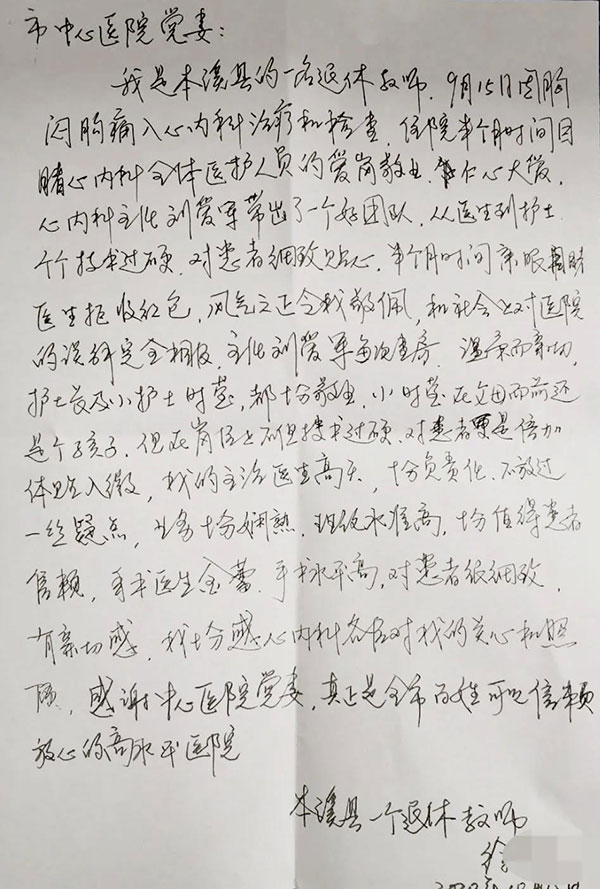 市中心医院党委：
我是本溪县的一名退休教师，9月15日因胸
闷胸痛入心内科治疗和检查，住院半个月时间目
睹心内科全体医护人员的爱岗敬业，仁心大爱，
心内科主任刘爱军带出了一个好团队，从医生到护士
个个技术过硬，对患者细致贴心，半个月时间亲眼目睹
医生拒收红包，风气之正令我敬佩，和社会上对医院
的误解完全相反，主任刘爱军每次查房，温柔而亲切，
护士长及小护士时莹，都十分敬业，小时莹在父母面前还
是个孩子，但在岗位上不但技术过硬，对患者更是倍加
体贴入微，我的主治医生高乐，十分负责任，不放过
一丝疑点，业务十分娴熟，理论水准高，十分值得患者
信赖，手术医生金蕾，手术水平高，对患者很细致，
有亲切感，我十分感心内科各位对我的关心和照
顾，感谢中心医院党委，真正是全市百姓可以信赖
放心的高水平医院
本溪县一个退休教师
徐